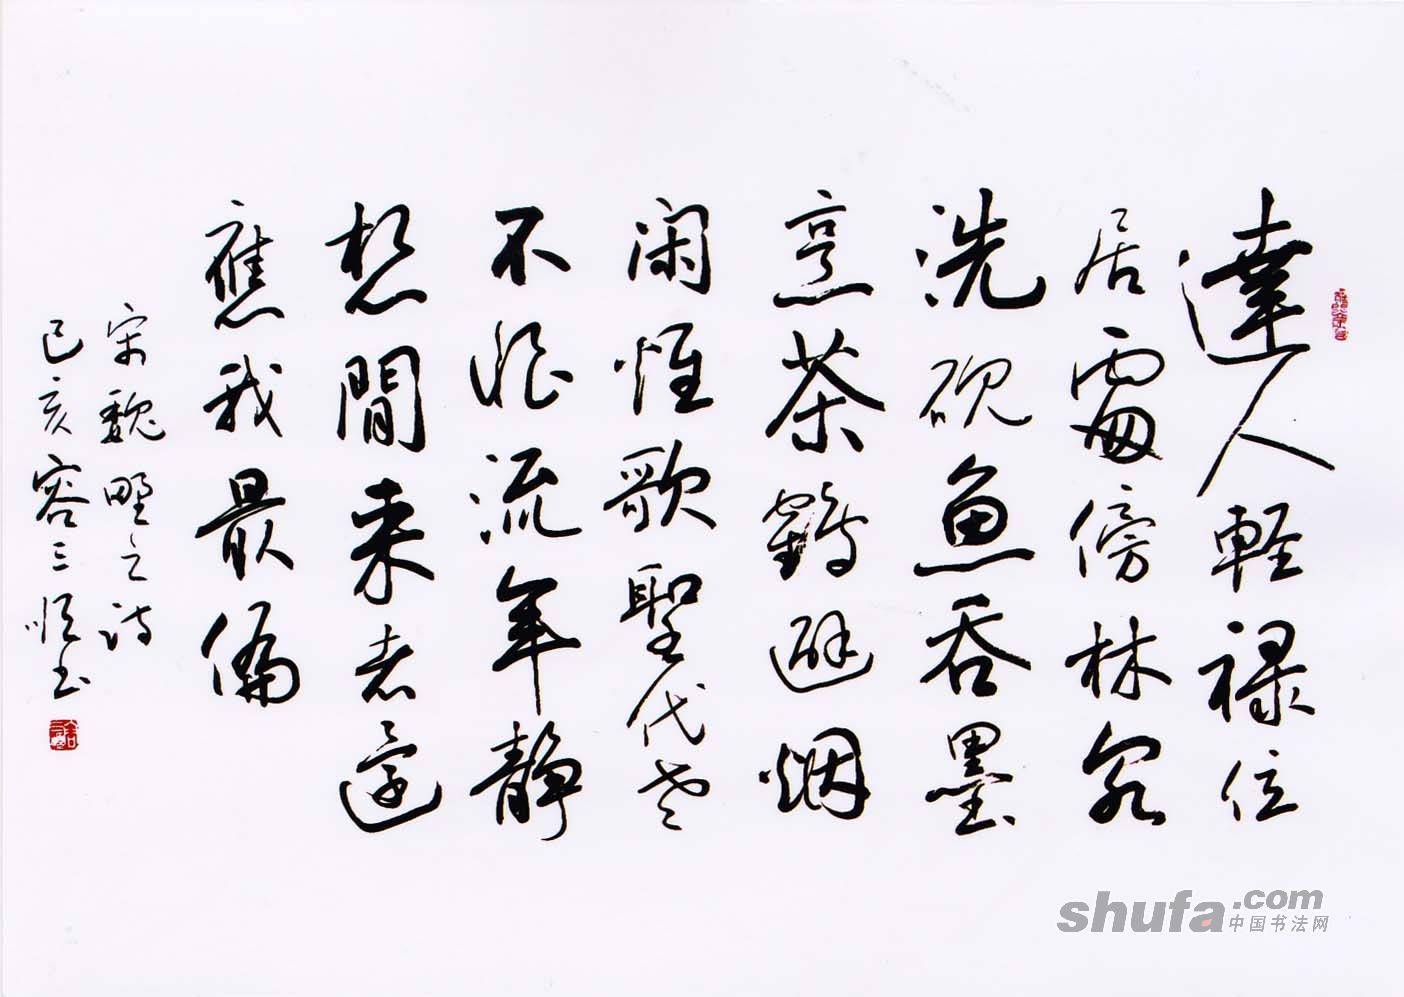 達人軽禄位
居處傍林泉
洗砚魚吞墨
烹茶鶴避烟
闲惟歌聖代老
不恨流年静
想間来者還
應我最偏
宋魏野之诗
己亥容三順书
shufa.com
中国书法网